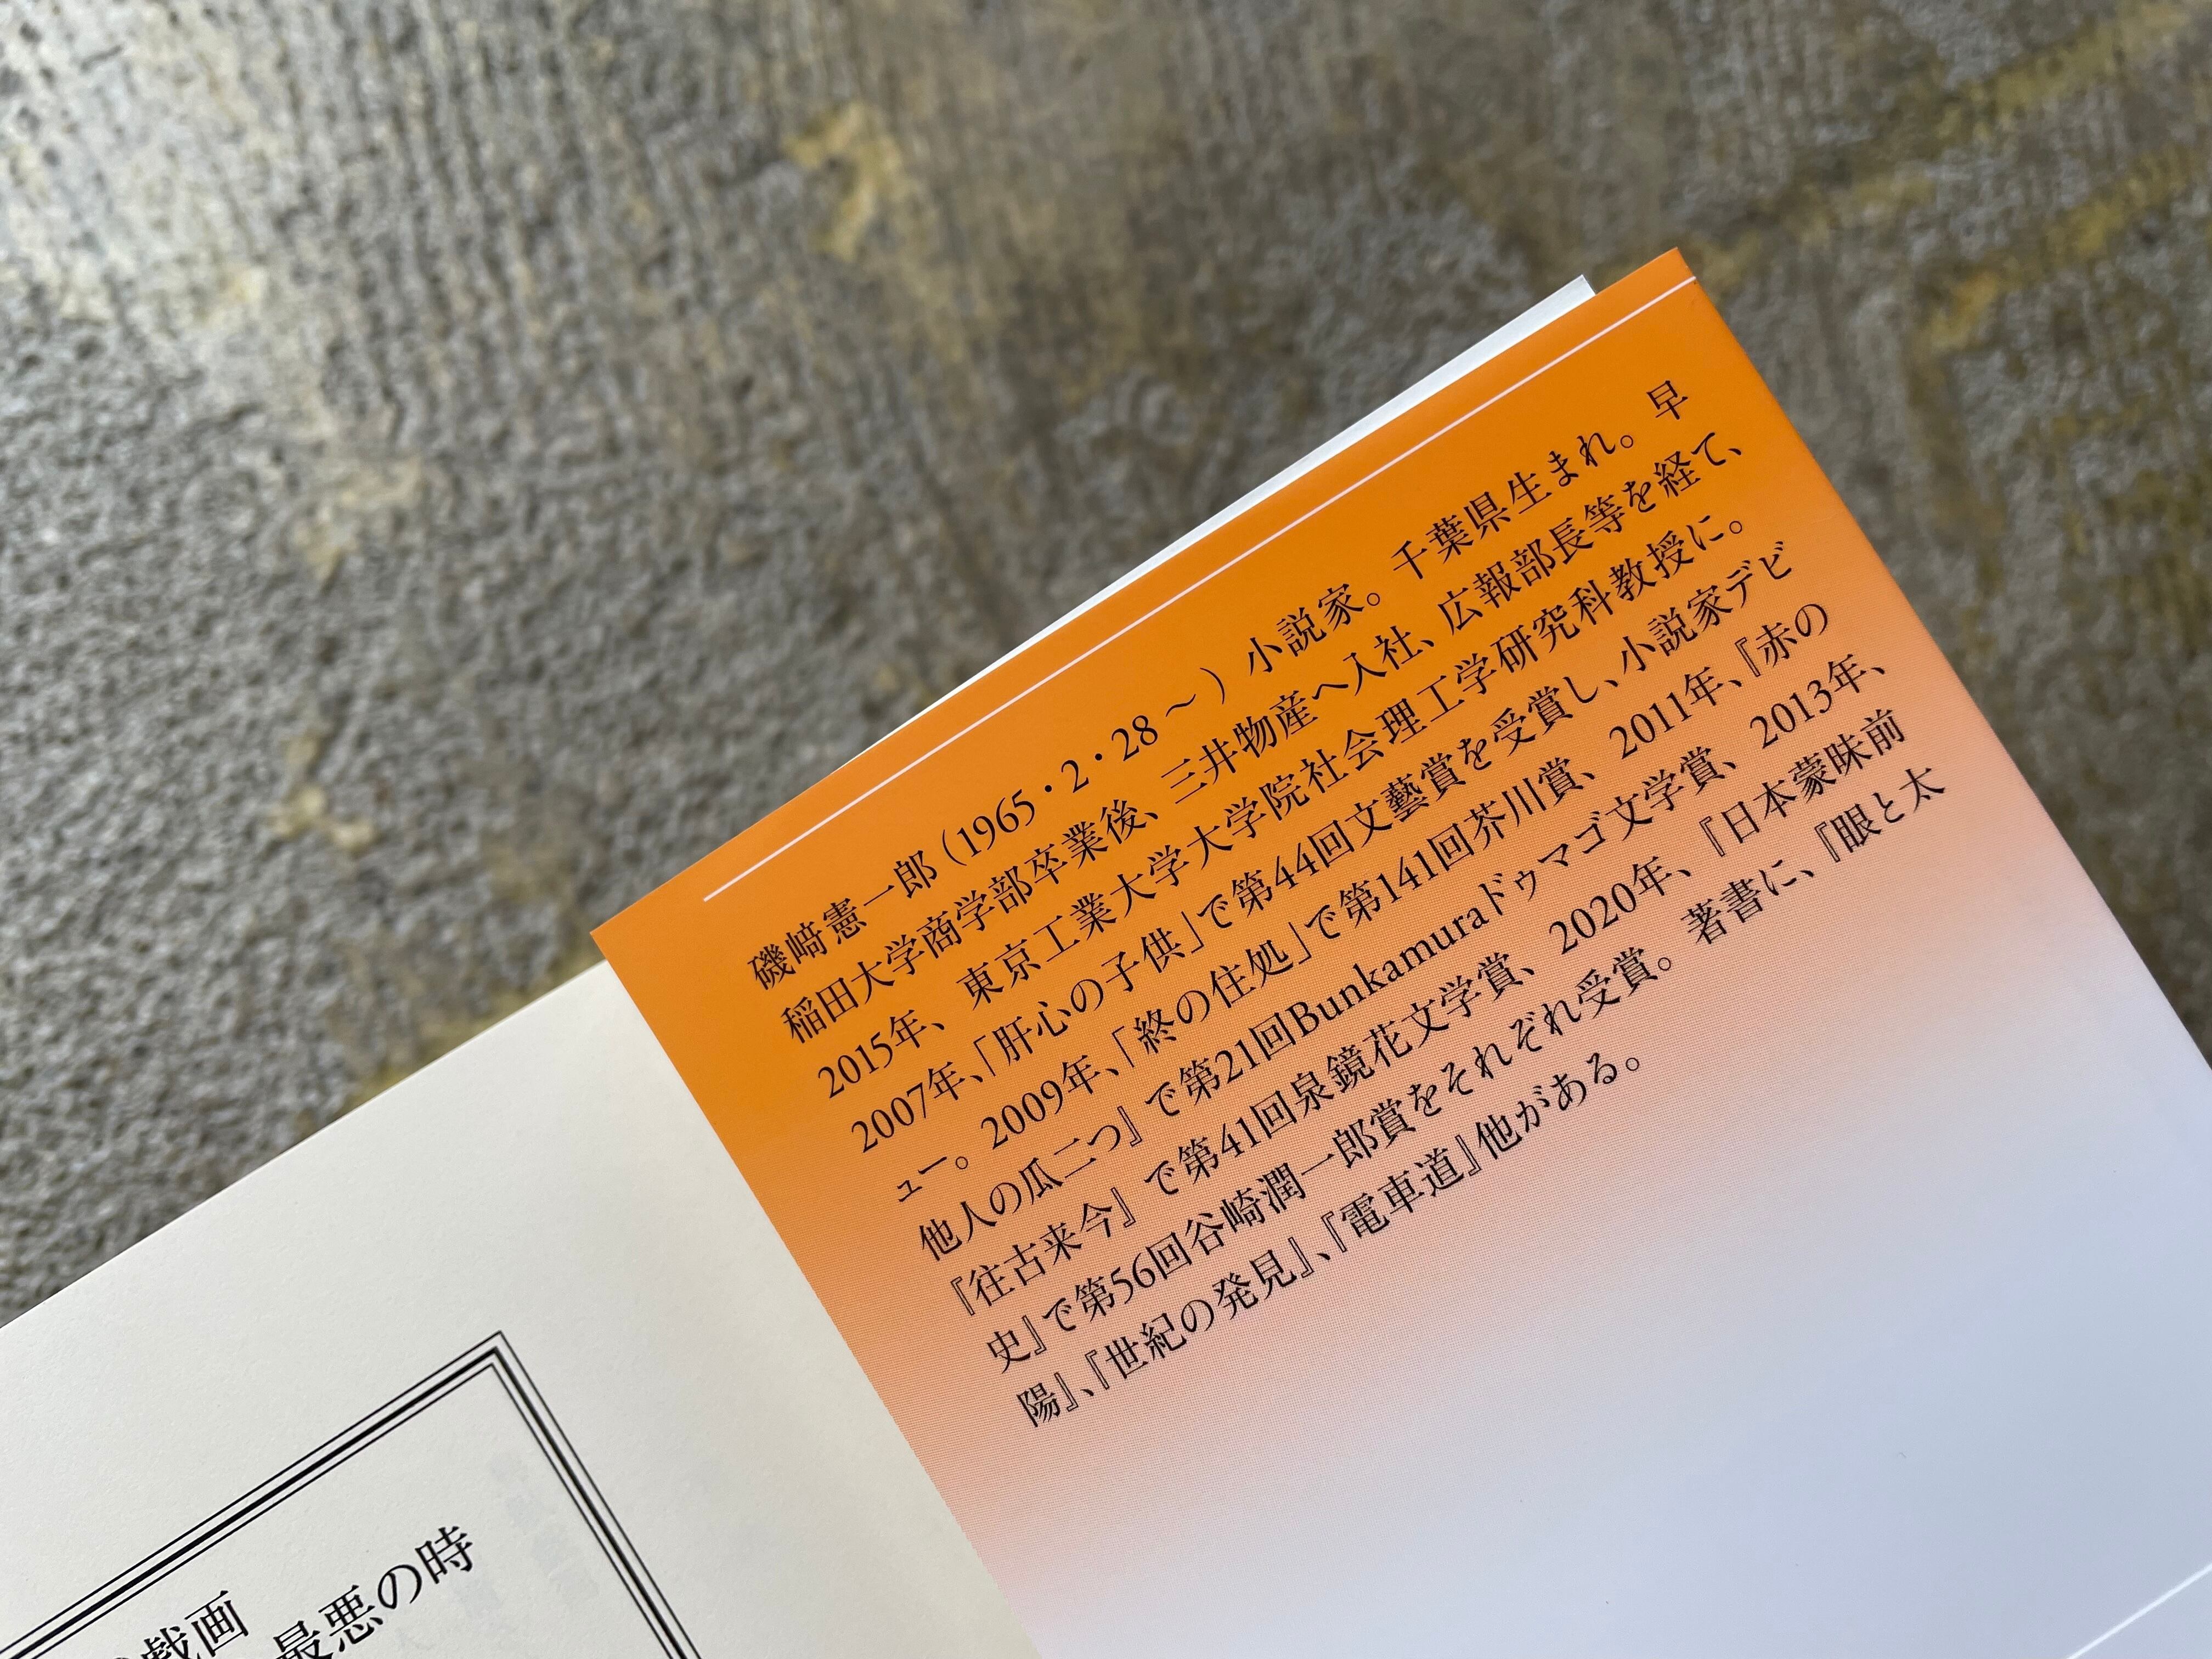 磯﨑憲一郎（1965・2・28～）小説家。千葉県生まれ。早
稲田大学商学部卒業後、三井物産へ入社、広報部長等を経て、
2015年、東京工業大学大学院社会理工学研究科教授に。
2007年、「肝心の子供」で第44回文藝賞を受賞し、小説家デビ
ュー。2009年、「終の住処」で第141回芥川賞、2011年、『赤の
他人の瓜二つ』で第21回Bunkamuraドゥマゴ文学賞、2013年、
『往古来今』で第41回泉鏡花文学賞、2020年、『日本蒙昧前
史』で第56回谷崎潤一郎賞をそれぞれ受賞。著書に、『眼と太
陽』、『世紀の発見』、『電車道』他がある。
戯画
最悪の時